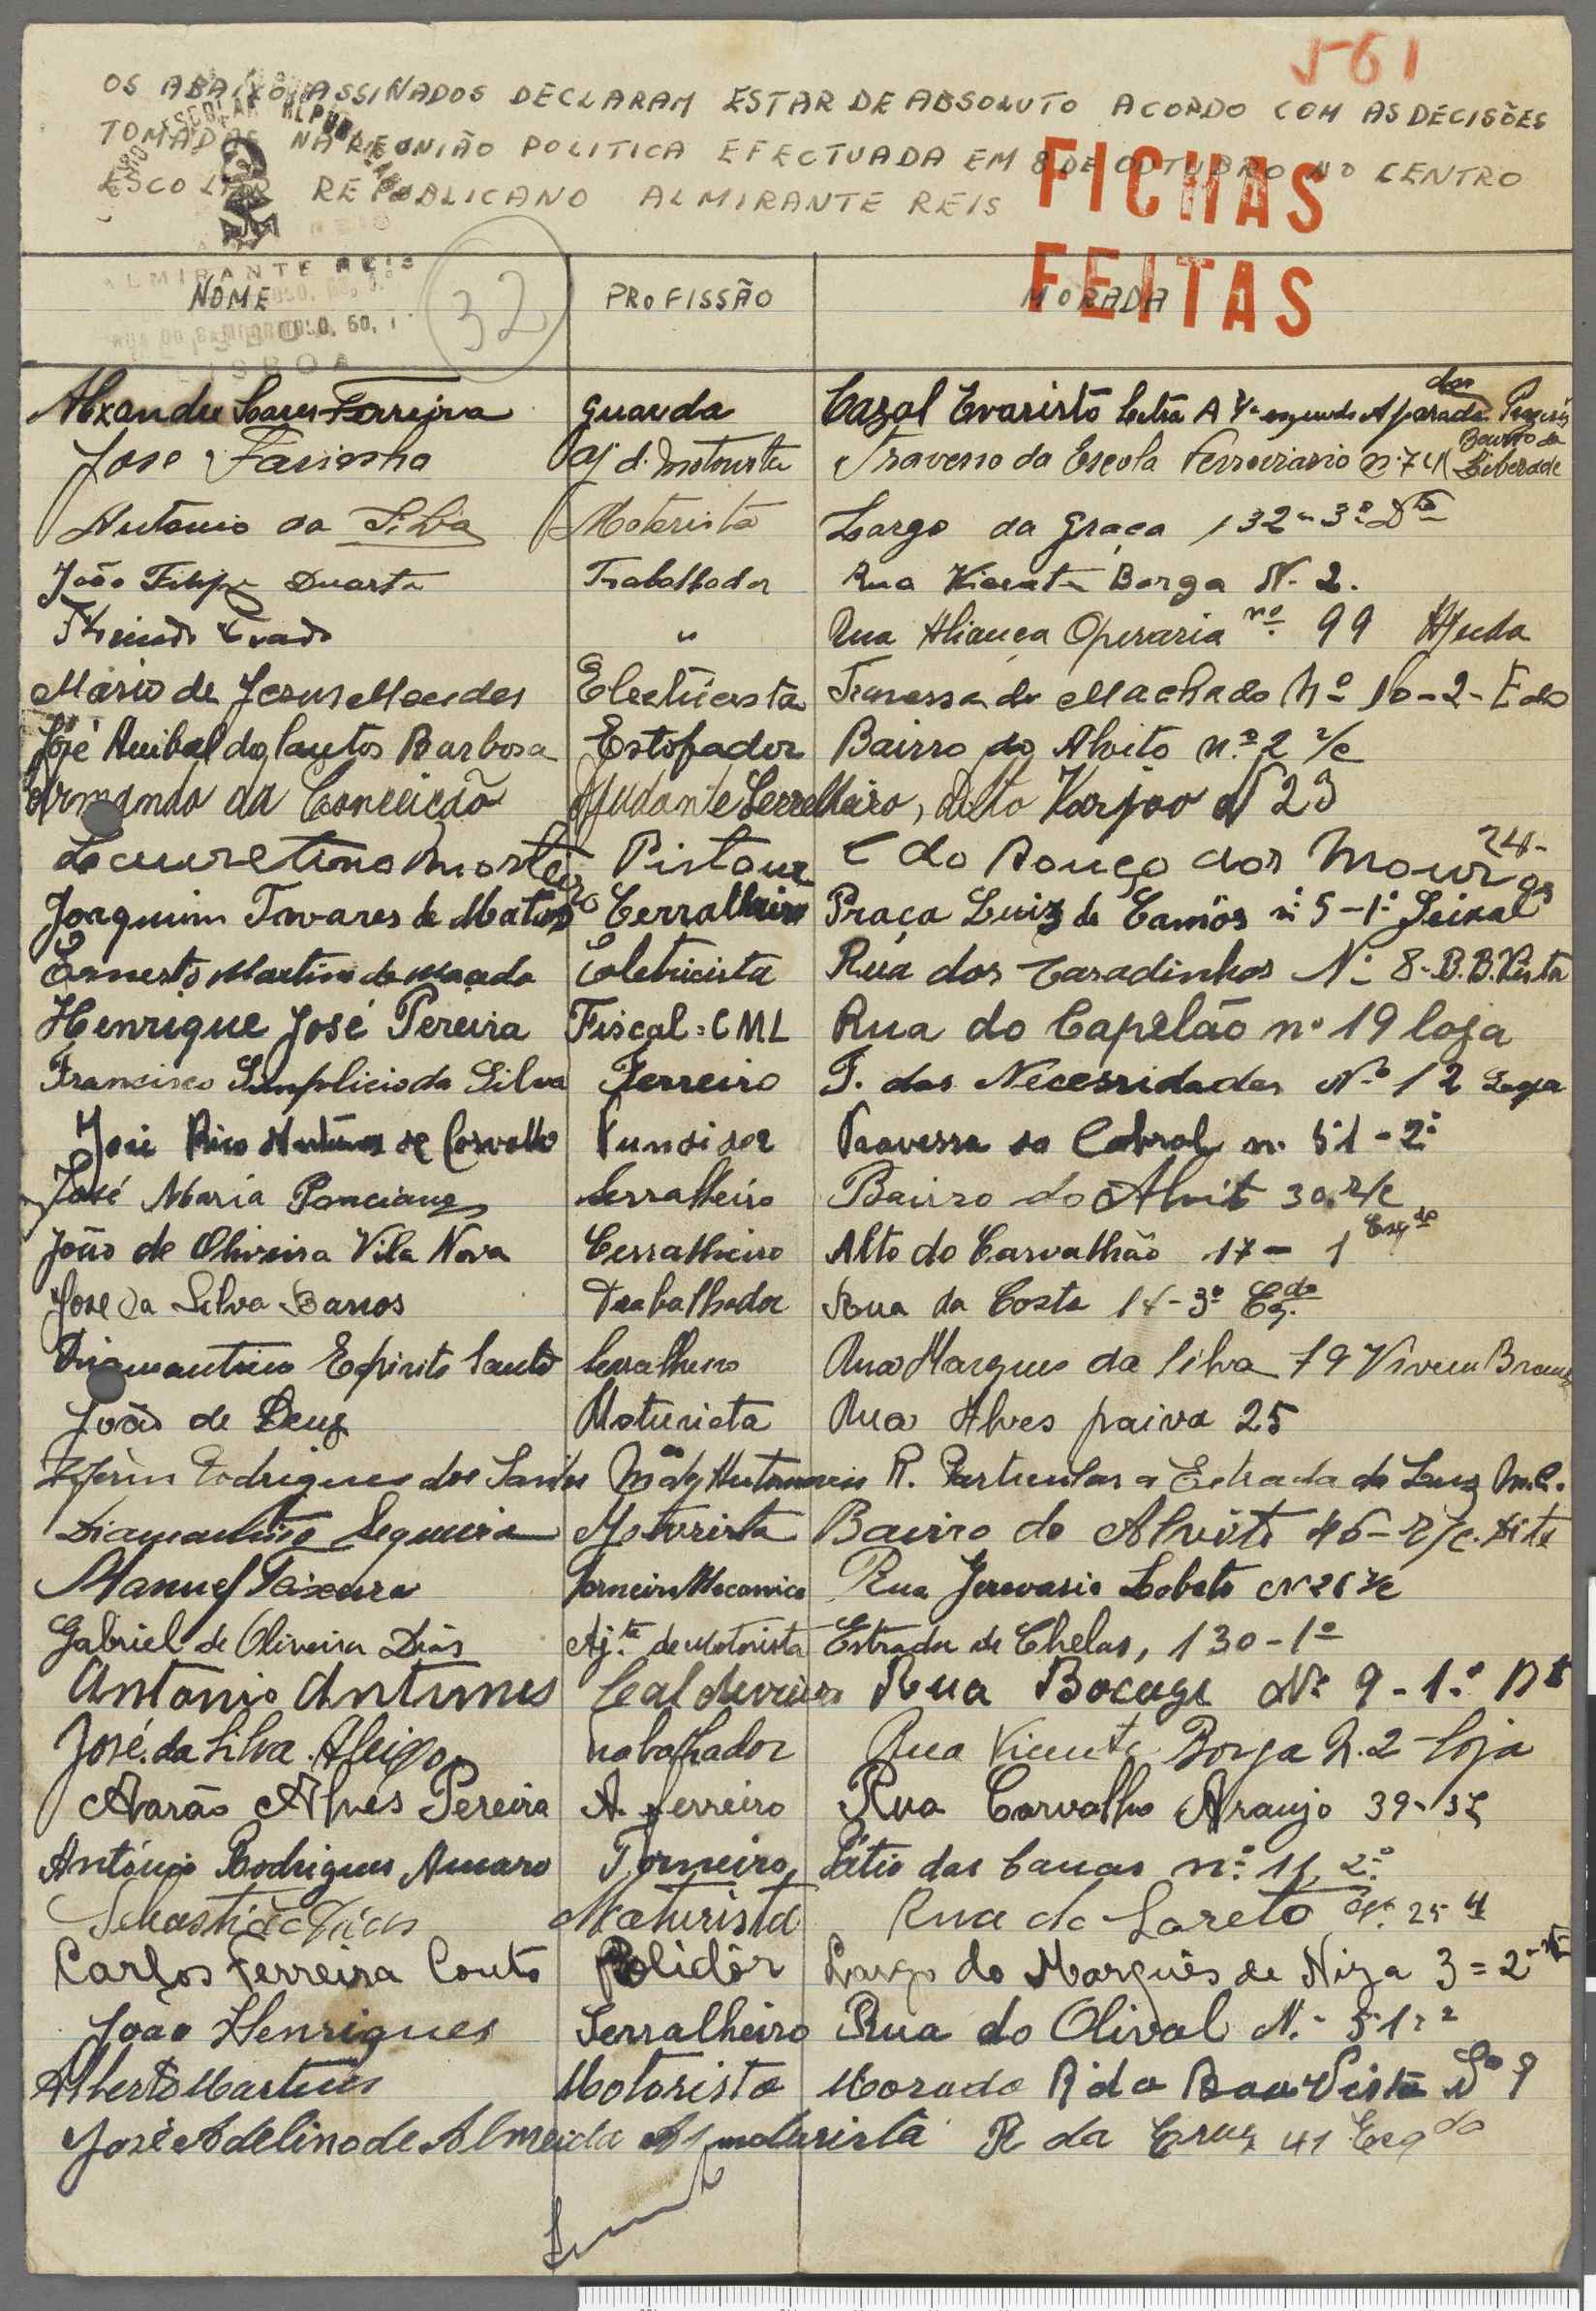 561
OS ABAIXO ASSINADOS DECLARAM ESTAR DE ABSOLUTO ACORDO COM AS DECISÕES
TOMADAS NA REUNIÃO POLITICA EFECTUADA EM 8 DE OUTUBRO NO CENTRO
ESCOLAR REPUBLICANO ALMIRANTE REIS
FICHAS
FEITAS
ALMIRANTE REIS
LISBOA
32
NOME PROFISSÃO MORADA
Alxandre Soares Ferreira guarda Cazal Evaristo Letra A
José Farinha Aj d. Motorista Travessa da Escola Ferroviario nº 74 Bairro da Liberdade
Antonio da Silva Motorista Largo da Graça 132-3º Dto
João Filipe Duarte Trabalhador Rua Borga N. 2.
" Rua Aliança Operaria nº 99 Ajuda
Mário de Jesus Mendes Electricista Travessa do Machado Nº 10-2-Edo
José Anibal dos Santos Barbosa Estofador Bairro do Alvito n.º 2 r/c
Armando da Conceição Ajudante Serralheiro, Alto Varjao N 29
do Pouço dos Mouros 24-
Joaquim Tavares de Matos Cerralheiro Praça Luiz de Camõs nº 5-1º Seixal
Ernesto Martins de Macedo Eoletricista Rua dos Caradinhos Nº 8-B.B. Vista
Henrique José Pereira Fiscal = CML Rua do Capelão nº 19 loja
Francisco Simplicio da Silva Ferreiro T. das Necessidades Nº 12 Loja
José Rico Antunes de Carvalho Fundidor Travessa do Cabral n. 51-2º
José Maria Ponciano Serralheiro Bairro do Alvit 30 r/c
João de Oliveira Vila Nova Cerralheiro Alto do Carvalhão 17-1 Esqdo
José da Silva Barros Trabalhador Rua da Costa 14-3º Eq.do
Diamantino Espirito Santo Serralheiro Rua Marques da Silva 79
João de Deus Moturista Rua Alves paiva 25
Rodrigues dos Santos R. Particular a Estrada da Luz M.C.
Diamantino Sequeira Motorista Bairro do Alvito 46-r/c. Dite
Manuel Teixeira Torneiro Mecanico Rua Jervasio Lobato N 26 r/c
Gabriel de Oliveira Dias Aj.te de Motorista Estrada de Chelas, 130-1º
Antonio Antunes Caldeireiro Rua Bocage Nº 9-1.º Dt
José da Silva Aleixo Trabalhador Rua Vicente Borga N. 2-loja
Aarão Alves Pereira A. ferreiro Rua Carvalho Araujo 39-
António Rodrigues Amaro Torneiro Pátio das Canas n.º 11, 2.º
Sebastião Dias Moturista Rua do Loreto 25 4
Carlos Ferreira Couto Polidôr Largo do Marquês de Niza 3=2º
João Henriques Serralheiro Rua do Olival N.º 51
Alberto Martins Motorista Morada R da Boa Vista Nº 9
José Adelino de Almeida Aj muturista R da Cruz 41 Esqdo